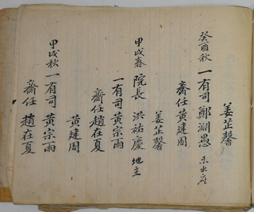 姜芷馨
癸酉秋 一有司 鄭湖愚 未出座
齋任 黃建周
姜芷馨
甲戌春 院長 洪祐慶 地主
一有司 黃宗雨
齋任 趙在夏
黃建周
甲戌秋 一有司 黃宗雨
齋任 趙在夏